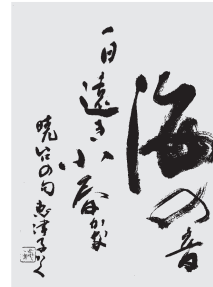 海の音
一日遠き小春かな
暁台の句 恵津子かく